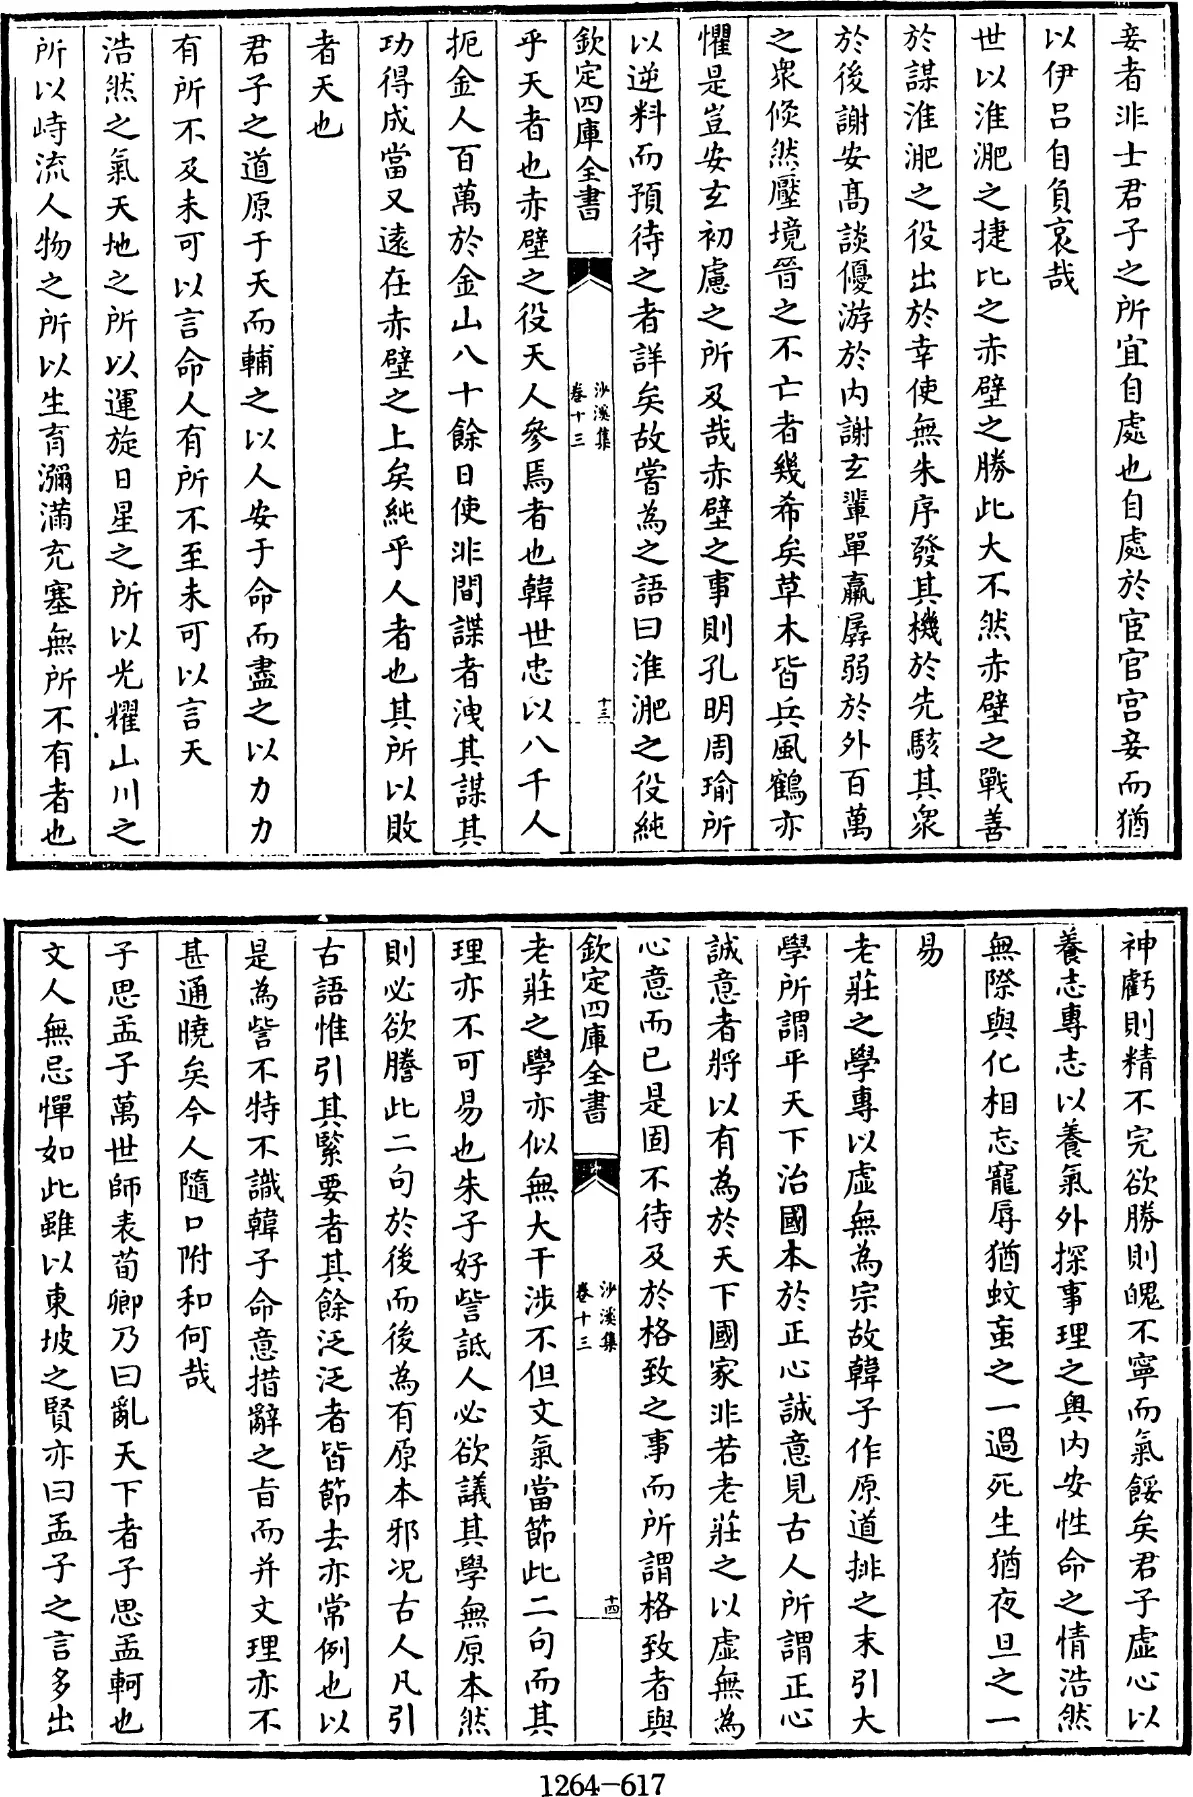 妾者非士君子之所宜自處也自處於宦官宮妾而猶
以伊呂自負哀哉
世以淮淝之捷比之赤壁之勝此大不然赤壁之戰善
於謀淮淝之役出於幸使無朱序發其機於先駭其衆
於後謝安髙談優游於内謝玄輩單羸孱弱於外百萬
之衆倐然壓境晉之不亡者幾希矣草木皆兵風鶴亦
懼是豈安玄初慮之所及哉赤壁之事則孔明周瑜所
以逆料而預待之者詳矣故嘗為之語曰淮淝之役純
欽定四庫全書
沙溪集
卷十三
十三
乎天者也赤壁之役天人參焉者也韓世忠以八千人
扼金人百萬於金山八十餘日使非間諜者洩其謀其
功得成當又遠在赤壁之上矣純乎人者也其所以敗
者天也
君子之道原于天而輔之以人安于命而盡之以力力
有所不及未可以言命人有所不至未可以言天
浩然之氣天地之所以運旋日星之所以光耀山川之
所以峙流人物之所以生育瀰滿充塞無所不有者也
神虧則精不完欲勝則魄不寧而氣餒矣君子虛心以
養志專志以養氣外探事理之奥内安性命之情浩然
無際與化相忘寵辱猶蚊䖟之一過死生猶夜旦之一
易
老莊之學專以虛無為宗故韓子作原道排之末引大
學所謂平天下治國本於正心誠意見古人所謂正心
誠意者將以有為於天下國家非若老莊之以虛無為
心意而已是固不待及於格致之事而所謂格致者與
欽定四庫全書
沙溪集
卷十三
十四
老莊之學亦似無大干涉不但文氣當節此二句而其
理亦不可易也朱子好訾詆人必欲議其學無原本然
則必欲謄此二句於後而後為有原本邪况古人凡引
古語惟引其緊要者其餘泛泛者皆節去亦常例也以
是為訾不特不識韓子命意措辭之旨而并文理亦不
甚通曉矣今人隨口附和何哉
子思孟子萬世師表荀卿乃曰亂天下者子思孟軻也
文人無忌憚如此雖以東坡之賢亦曰孟子之言多出
1264—617